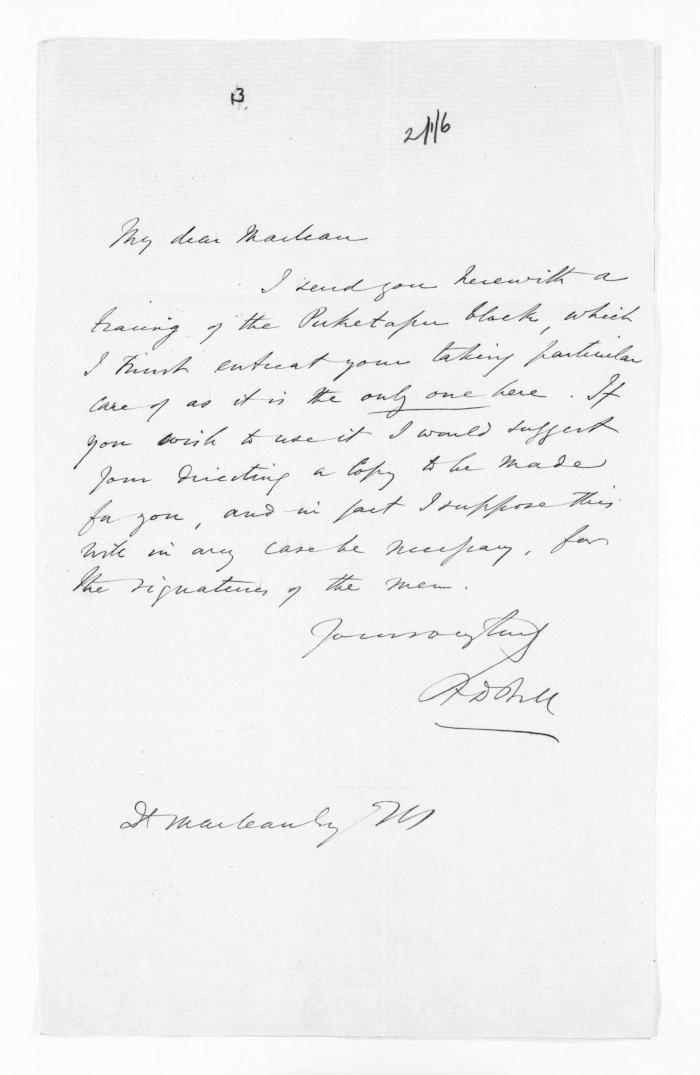 13.
2/1/6
My dear Maclean
I send you herewith a
tracing of the Puketapu block, which
I must entreat your taking particular
care of as it is the only one here. If
you wish to use it I would suggest
your directing a Copy to be made
for you, and in fact I suppose this
will in any case be necessary, for
the signatures of the men.
Yours very truly
D Maclean Esq